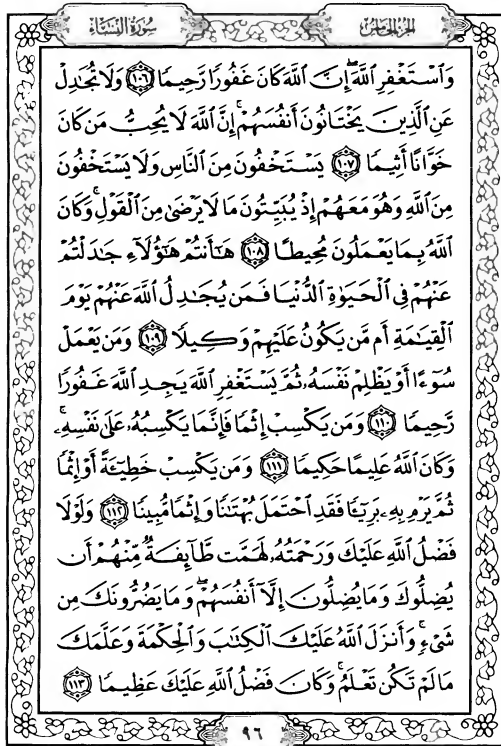 سُورَةُ النِّسَاءِ
الجزء الخامس
وَٱسْتَغْفِرِ ٱللَّهَۖ إِنَّ ٱللَّهَ كَانَ غَفُورًا رَّحِيمًا ١٠٦ وَلَا تُجَٰدِلْ
عَنِ ٱلَّذِينَ يَخْتَانُونَ أَنفُسَهُمْۚ إِنَّ ٱللَّهَ لَا يُحِبُّ مَن كَانَ
خَوَّانًا أَثِيمًا ١٠٧ يَسْتَخْفُونَ مِنَ ٱلنَّاسِ وَلَا يَسْتَخْفُونَ
مِنَ ٱللَّهِ وَهُوَ مَعَهُمْ إِذْ يُبَيِّتُونَ مَا لَا يَرْضَىٰ مِنَ ٱلْقَوْلِۚ وَكَانَ
ٱللَّهُ بِمَا يَعْمَلُونَ مُحِيطًا ١٠٨ هَٰٓأَنتُمْ هَٰٓؤُلَآءِ جَٰدَلْتُمْ
عَنْهُمْ فِى ٱلْحَيَوٰةِ ٱلدُّنْيَا فَمَن يُجَٰدِلُ ٱللَّهَ عَنْهُمْ يَوْمَ
ٱلْقِيَٰمَةِ أَم مَّن يَكُونُ عَلَيْهِمْ وَكِيلًا ١٠٩ وَمَن يَعْمَلْ
سُوٓءًا أَوْ يَظْلِمْ نَفْسَهُۥ ثُمَّ يَسْتَغْفِرِ ٱللَّهَ يَجِدِ ٱللَّهَ غَفُورًا
رَّحِيمًا ١١٠ وَمَن يَكْسِبْ إِثْمًا فَإِنَّمَا يَكْسِبُهُۥ عَلَىٰ نَفْسِهِۦۚ
وَكَانَ ٱللَّهُ عَلِيمًا حَكِيمًا ١١١ وَمَن يَكْسِبْ خَطِيٓـَٔةً أَوْ إِثْمًا
ثُمَّ يَرْمِ بِهِۦ بَرِيٓـًٔا فَقَدِ ٱحْتَمَلَ بُهْتَٰنًا وَإِثْمًا مُّبِينًا ١١٢ وَلَوْلَا
فَضْلُ ٱللَّهِ عَلَيْكَ وَرَحْمَتُهُۥ لَهَمَّت طَّآئِفَةٌ مِّنْهُمْ أَن
يُضِلُّوكَ وَمَا يُضِلُّونَ إِلَّآ أَنفُسَهُمْۖ وَمَا يَضُرُّونَكَ مِن
شَىْءٍۚ وَأَنزَلَ ٱللَّهُ عَلَيْكَ ٱلْكِتَٰبَ وَٱلْحِكْمَةَ وَعَلَّمَكَ
مَا لَمْ تَكُن تَعْلَمُۚ وَكَانَ فَضْلُ ٱللَّهِ عَلَيْكَ عَظِيمًا ١١٣
٩٦